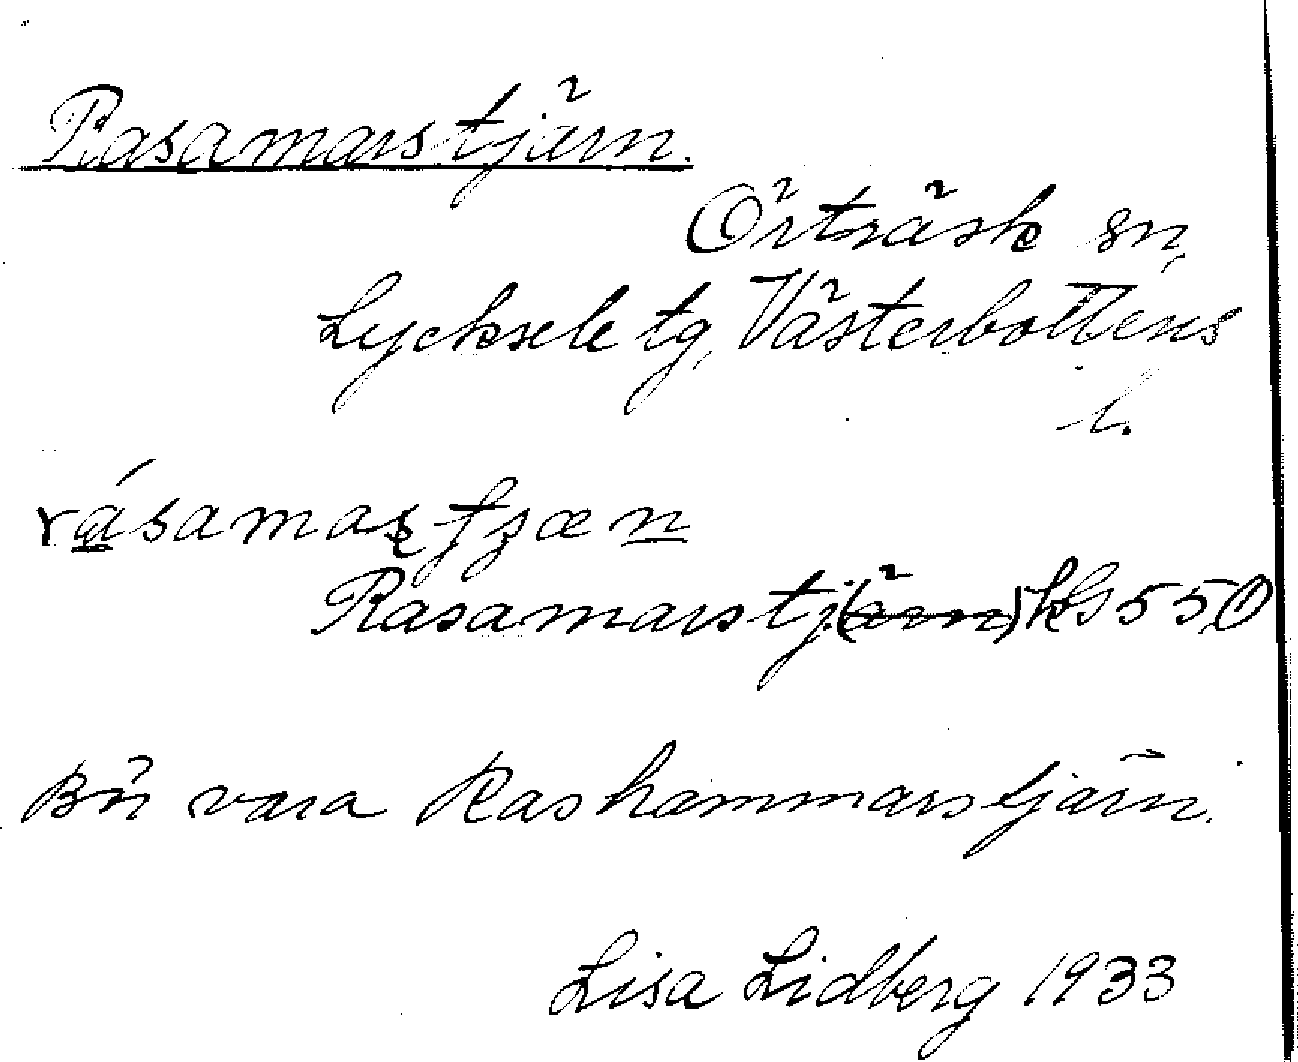 Rasamarstjärn.
Örträsk sn,
Lycksele tg, Västerbottens
l.
rásamaʂtjæn
Rasamarstj(ärn) ks 550
Bör vara Rashammarstjärn.
Lisa Lidberg 1933